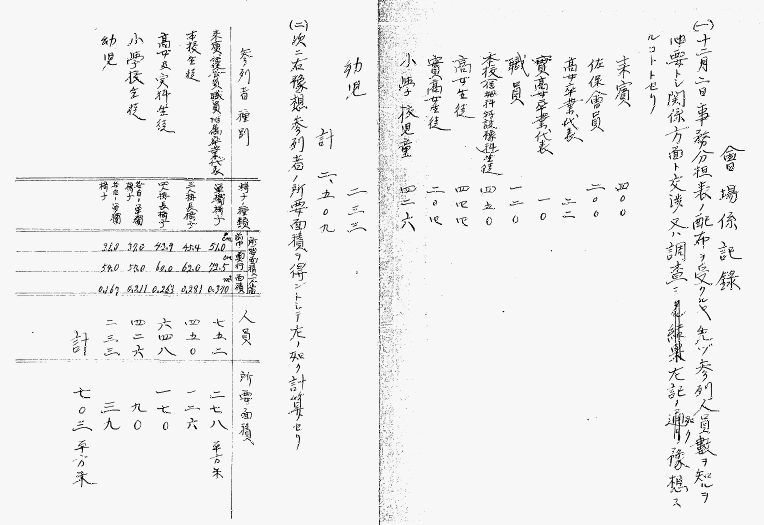 會場係記錄
(一)十二月二日事務分担表ノ配布ヲ受クルヤ先ヅ参列人員數ヲ知ルヲ
必要トシ関係方面ト交渉又ハ調査シタル結果左記ノ通リ豫想ス
ルコトトセリ
来賓 四〇〇
佐保會員 二〇〇
高女卒業代表 二二
實高女卒業代表 一〇
職員 一二〇
本校生徒 四五〇
高女生徒 四四四
實高女生徒 二〇四
小學校児童 四二六
幼児 二三三
計 二、五〇九
(二)次ニ右豫想参列者ノ所要面積ヲ得ントシテ左ノ如ク計算セリ
参列者種別 椅子ノ種類 所要面積 人員 所要面積
来賓佐保會員職員卒業代表 單獨椅子 51.0 72.5 0.370 七五二 二七八平方米
本校生徒 三人掛長椅子 45.4 62.0 0.281 四五〇 一二六
高女及実科生徒 長椅子 43.9 60.0 0.263 六四八 一七〇
小學校生徒 單獨椅子 37.0 57.0 0.211 四二六 九〇
幼児 單獨椅子 31.0 54.0 0.167 二三三 三九
計 七〇三平方米